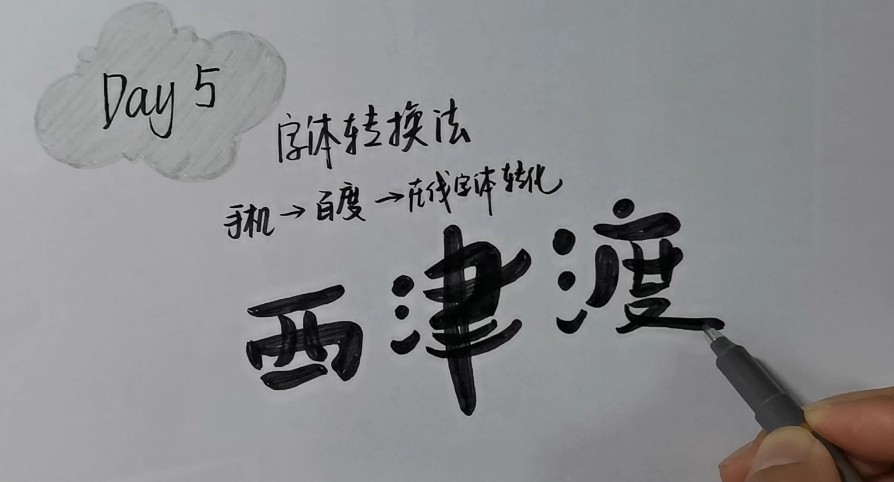 Day 5
字体转换法
手机→百度→在线字体转化
西津渡